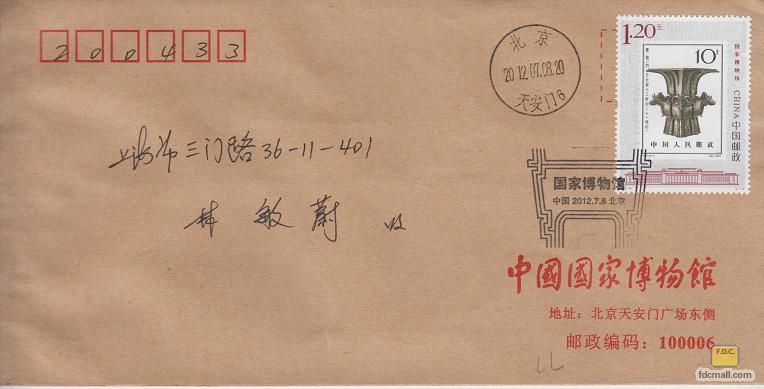 200433
北京
2012.07.08.20
天安门6
1.20元
国家博物馆
10分
中国人民邮政
CHINA 中国邮政
上海市三门路36-11-401
敏蔚 收
国家博物馆
中国 2012.7.8 北京
中國國家博物館
地址：北京天安门广场东侧
邮政编码：100006
F.D.C.
fdcmall.com